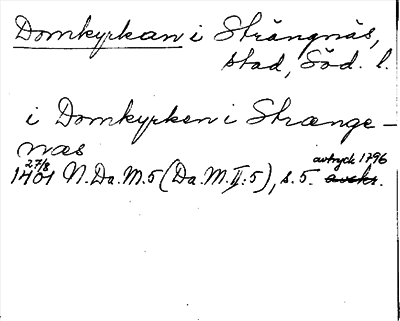 Domkyrkan i Strängnäs,
stad, Söd. l.
i Domkyrken i Strænge-
næs
1401 27/8 N. Da. M. 5 (Da. M. II: 5), s. 5. avtryck 1796 avskr.